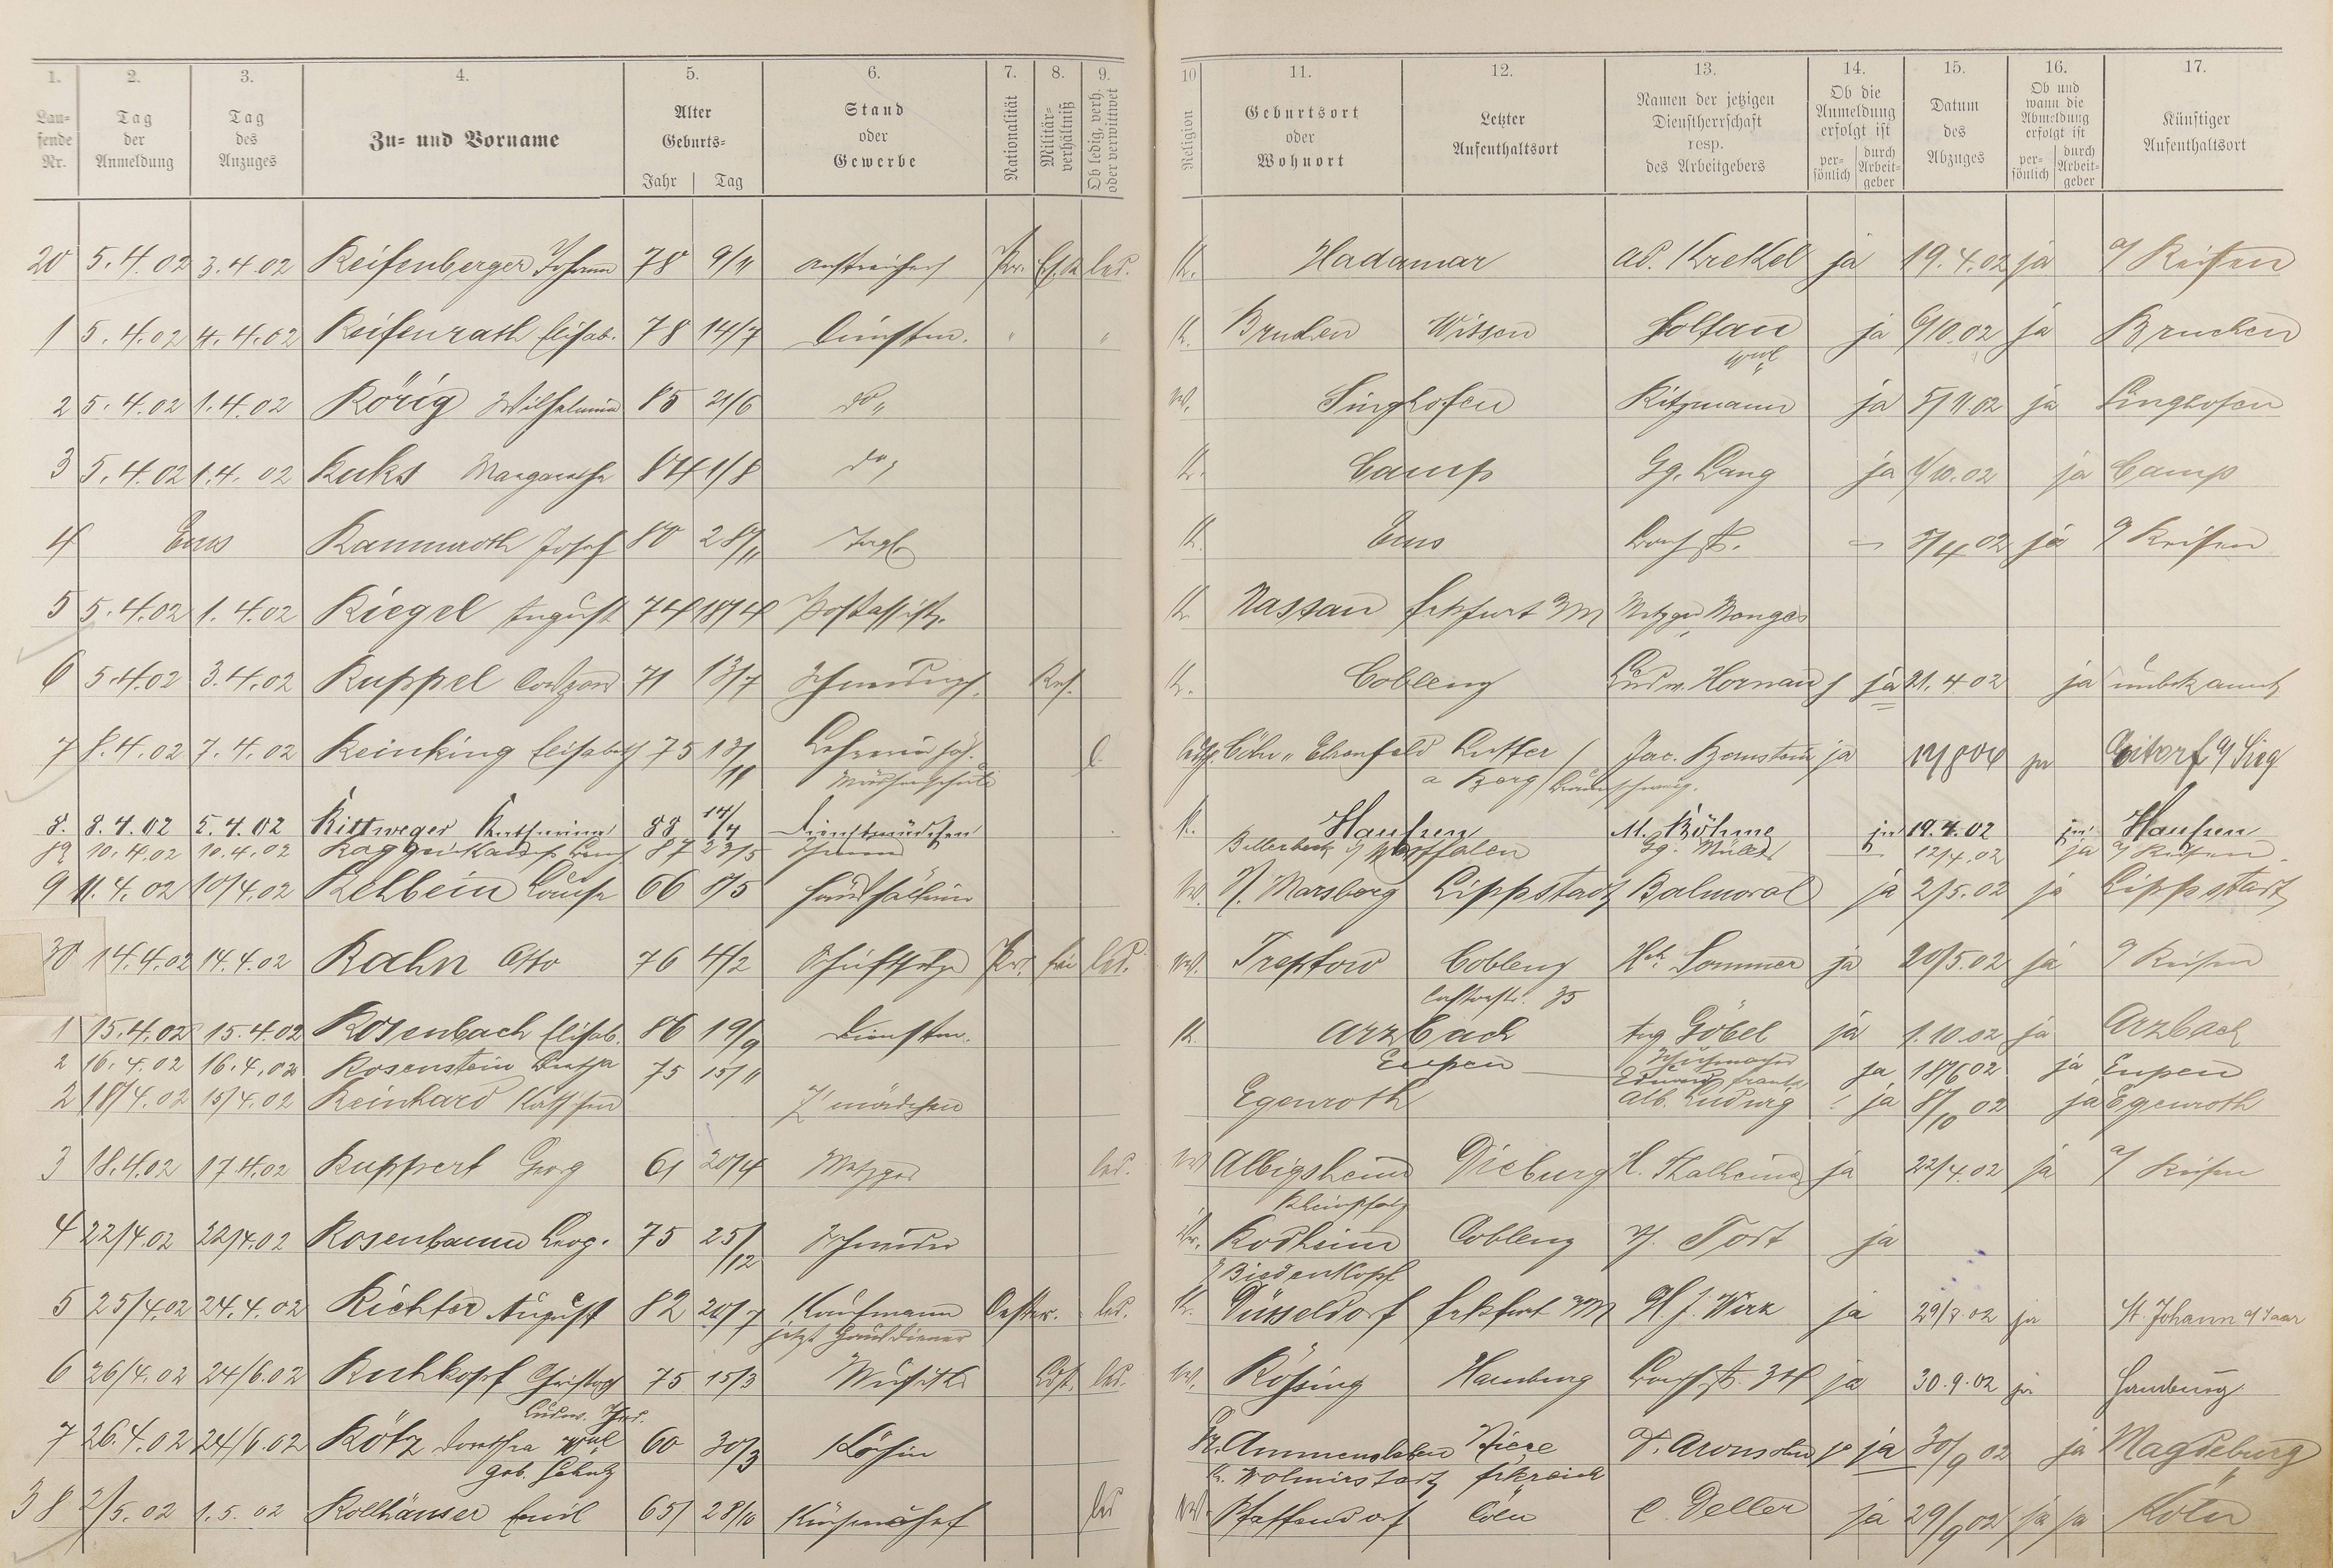 1. 2. 3. 4. 5. 6. 7. 8. 9. 10 11. 12. 13. 14. 15. 16. 17.
Laufende Nr. Tag der Anmeldung Tag des Anzuges Zu- und Vorname Alter Geburts- Jahr Tag Stand oder Gewerbe Nationalität Militärverhältniß Ob ledig, verh. oder verwittwet Religion Geburtsort oder Wohnort Letzter Aufenthaltsort Namen der jetzigen Dienstherrschaft resp. des Arbeitgebers Ob die Anmeldung erfolgt ist persönlich durch Arbeitgeber Datum des Abzuges Ob und wann die Abmeldung erfolgt ist persönlich durch Arbeitgeber Künftiger Aufenthaltsort
20 5.4.02 3.4.02 Reifenberger Johann 78 9/11 Anstreicher Pr. led. K. Hadamar Ad. Krekel ja 19.4.02 ja a/ Reisen
1 5.4.02 4.4.02 Reifenrath Elisab. 78 14/7 Dienstm. " " K. Bruchen Wissen ja 6/10.02 ja Bruchen
2 5.4.02 1.4.02 Rörig Wilhelmine 85 21/6 do " Singhofen Ritzmann ja 5/11.02 ja Singhofen
3 5.4.02 1.4.02 Ruks Margarethe 84 1/8 do " K. Camp Gg. Lang ja 1/10.02 ja Camp
4 Ems Rammroth Josef 80 28/11 Tagl. K. Ems 5/4 02 ja a/ Reisen
5 5.4.02 1.4.02 Riegel August 74 18/4 Postassist. K. Nassau Frkfurt a/M Metzger Monges
6 5.4.02 3.4.02 Ruppel 71 13/7 Res. K. Coblenz Ludw. Hornauf ja 21.4.02 ja unbekannt
7 8.4.02 7.4.02 Reinking Elisabeth 75 13/11 Lehrerin höh. l. Cöln " Ehrenfeld Lutter / Jac. Bernstein ja ja Eitorf a/ Sieg
Mädchenschule a Berg / Braunschweig.
8. 8.4.02 5.4.02 Rittweger Katharina 88 14/4 Dienstmädchen K. Hausen M. Böhme ja 19.4.02 ja Hausen
10.4.02 10.4.02 87 23/5 Billerbeck i/ Westfalen Gg. Müller 12/4.02 ja a/ Reisen
9 11.4.02 10/4.02 Rehbein Louise 66 8/5 Haushälterin N. Marsberg Lippstadt Balmoral ja 2/5.02 ja Lippstadt
30 14.4.02 14.4.02 Rahn Otto 76 4/2 Schriftsetzer Pr. frei led. Treptow Coblenz Hch. Sommer ja 20/5.02 ja a/ Reisen
Castorstr. 35
1 15.4.02 15.4.02 Rosenbach Elisab. 86 19/9 Dienstm. K. Arzbach Aug Göbel ja 1.10.02 ja Arzbach
2 16.4.02 16.4.02 Rosenstein 75 15/11 Eupen ja 18/6 02 ja Eupen
2 18/4.02 15/4.02 Reinhard Kathchen Egenroth Alb. Ludwig ja 8/10 02 ja Egenroth
3 18.4.02 17.4.02 Ruppert Georg 61 20/4 Metzger led. Albigsheim Dieburg H. Thalheimer ja 22/4.02 ja a/ Reisen
Rheinpfalz
4 22/4.02 22/4.02 Rosenbaum 75 25/12 Schneider Rodheim Coblenz Tott ja
Biedenkopf
5 25/4.02 24.4.02 Richter August 82 20/7 Kaufmann Oester. led. K. Düsseldorf Frkfurt a/M H. J. Wirz ja ja St. Johann a/ Saar
jetzt Hausdiener
6 26/4.02 24/6.02 Ruhkopf Christoph 75 15/3 Musik. Ldst. led. Rössing Hamburg 34 ja 30.9.02 ja Hamburg
7 26.4.02 24/6.02 Rötz Dorothea 60 30/3 Köchin Gr. Ammensleben ja 30/9 02 ja Magdeburg
geb. Schulz K. Wolmirstadt Frkreich
38 2/5.02 1.5.02 Rollhäuser Emil 65 28/10 Küchenchef led Pfaffendorf Cöln C. Deller ja 29/9 02 ja ja Köln